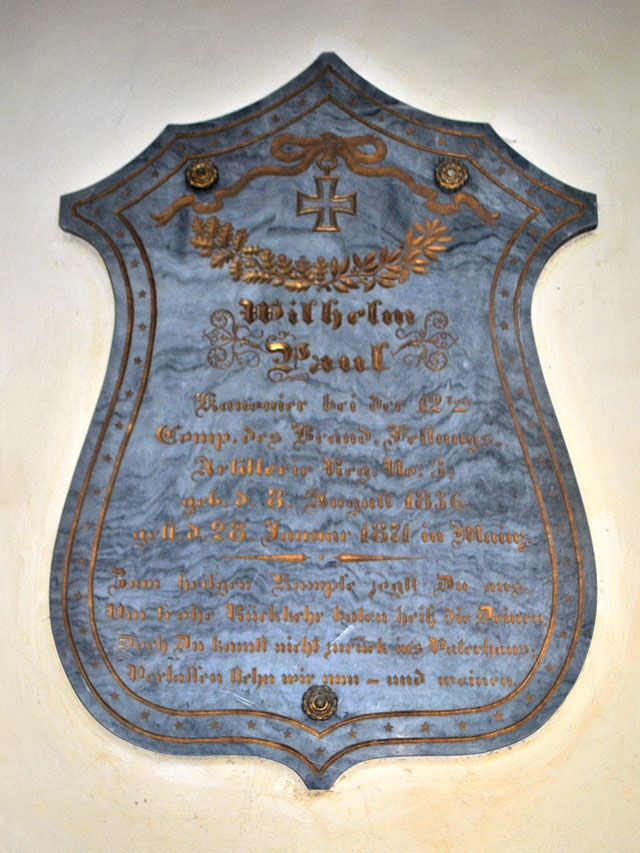 Wilhelm
Paul
Kanonier bei der 12ts
Comp. des Brand. Festungs.
Artillerie Reg. No: 3:
geb. d. 8. August 1836.
gest. d. 28. Januar 1871 in Mainz.
Zum heilgen Kampfe zogst Du aus.
Um frohe Rückkehr baten heiß die Deinen
Doch Du kamst nicht zurück ins Vaterhaus.
Verlassen stehn wir nun – und weinen.